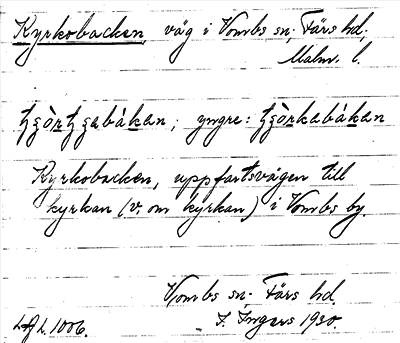 Kyrkobacken, väg i Vombs sn; Färs hd;
Malm. l.
tʒo̊rtʒabákan; yngre: tʒo̊rkabákan
Kyrkobacken, uppfartsvägen till
kyrkan (v. om kyrkan) i Vombs by.
Vombs sn. Färs hd.
I. Ingers 1930.
LA l. 1006.